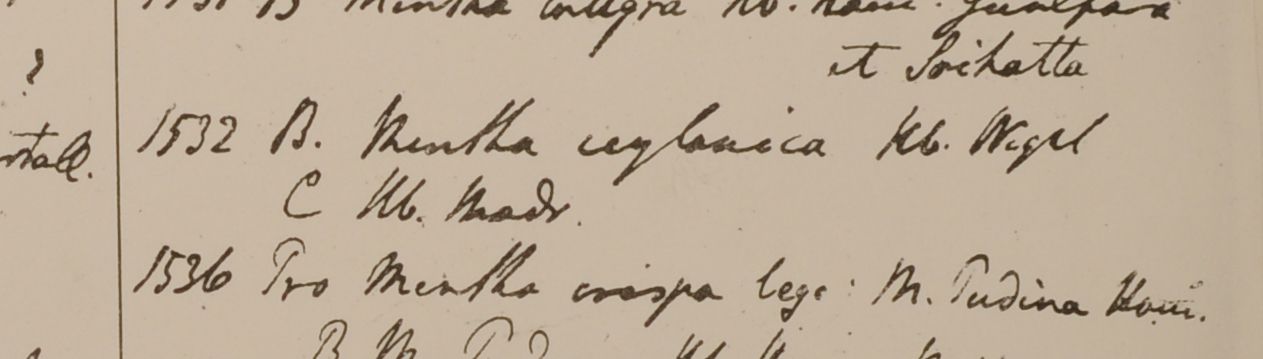 1531 B Mentha integra Hb. Ham. Gualpara
et Srihatta
?
1532 B. Mentha zeylanica Hb. Wight
stall.
C Hb. Madr.
1536 Pro Mentha crispa lege: M. Pudina Ham.
B M.